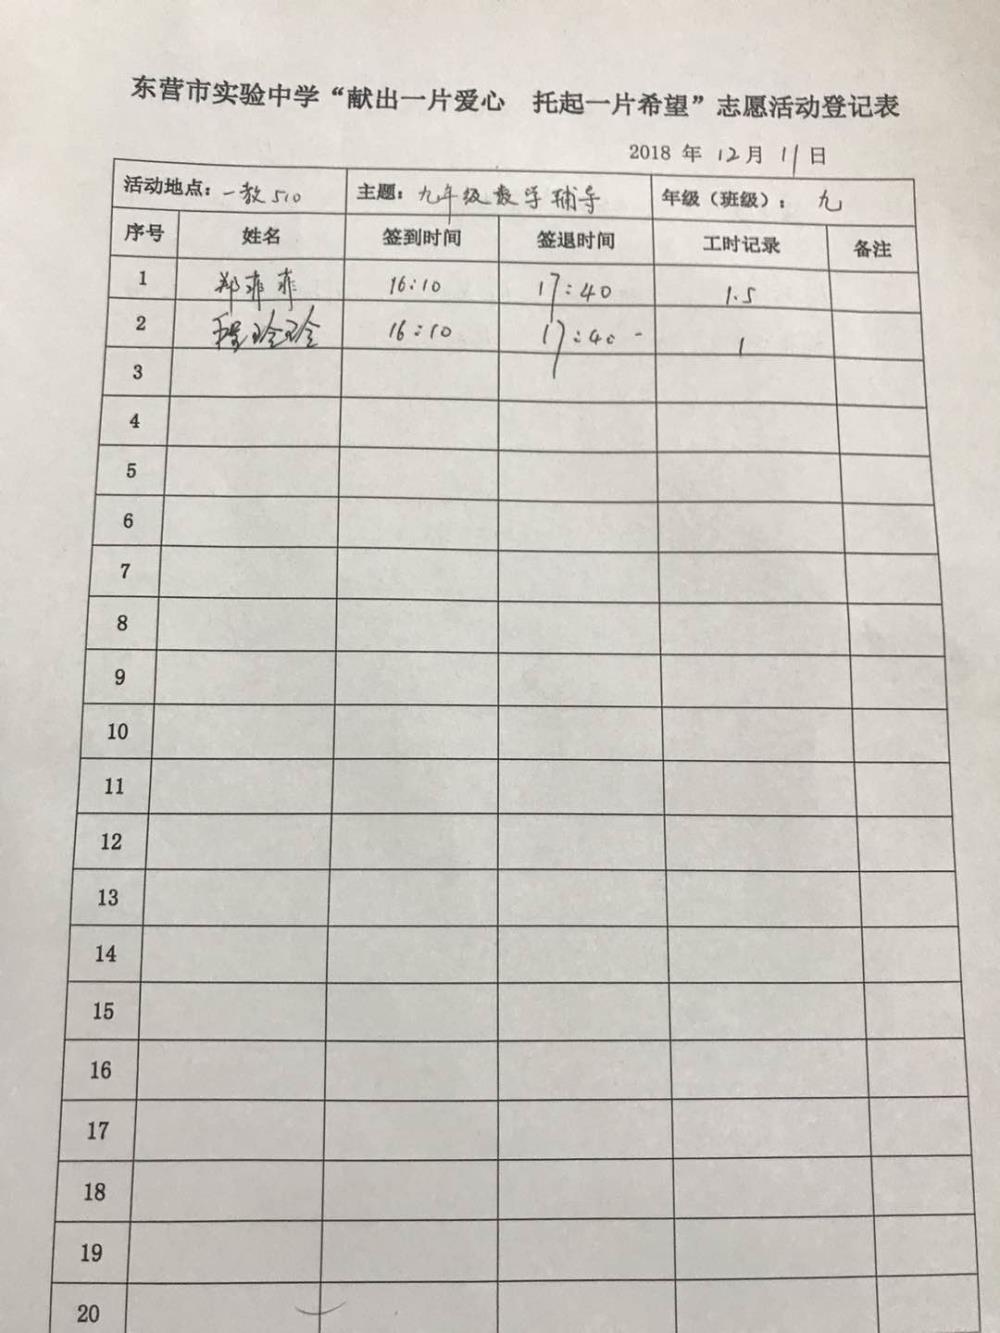 东营市实验中学“献出一片爱心 托起一片希望”志愿活动登记表
2018 年 12月 11日
活动地点：一教510 主题：九年级数学辅导 年级（班级）：九
序号 姓名 签到时间 签退时间 工时记录 备注
1 郑菲菲 16:10 17:40 1.5
2 程玲玲 16:10 17:40 1
3
4
5
6
7
8
9
10
11
12
13
14
15
16
17
18
19
20